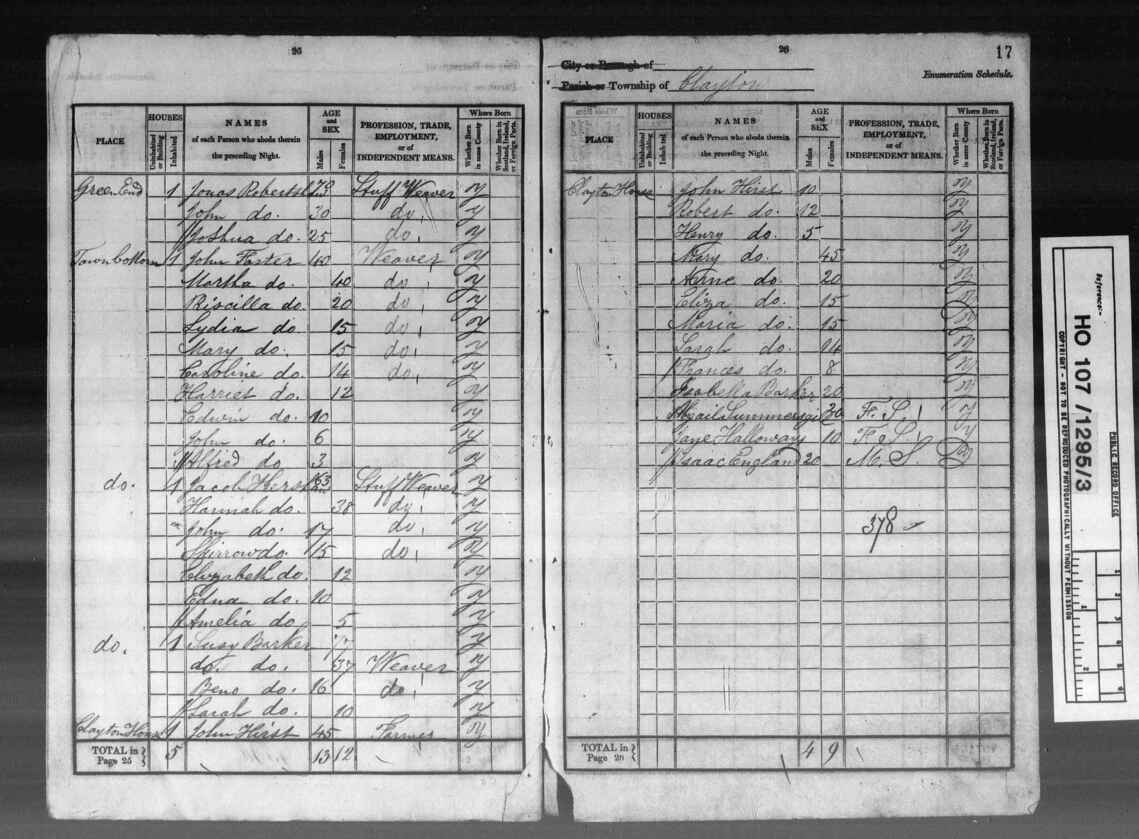 26
PLACE HOUSES Uninhabited or Building Inhabited NAMES of each Person who abode therein the preceding Night. AGE and SEX Males Females PROFESSION, TRADE, EMPLOYMENT, or of INDEPENDENT MEANS. Where Born Whether Born in same County Whether Born in Scotland, Ireland, or Foreign Parts.
Green End 1 Jonas Robertshaw Stuff Weaver y
John do. 30 do. y
Joshua do. 25 do. y
Town bottom 1 John Foster 40 Weaver y
Martha do. 40 do y
Priscilla do. 20 do y
Lydia do. 15 do. y
Mary do. 15 do. y
Caroline do. 14 do. y
Harriet do. 12 y
Edwin do. 10 y
John do. 6 y
Alfred do. 3 y
do. 1 Jacob Stuff Weaver y
Hannah do. 38 do. y
John do. 17 do. y
do. 15 do. y
Elizabeth do. 12 y
Edna do. 10 y
Amelia do. 5 y
do. 1 Susy Barker y
do. do. 37 Weaver y
Beno do. 16 do. y
Sarah do. 10 y
Clayton House 1 John Hirst 45 Farmer y
TOTAL in Page 25 5 13 12
26
17
City or Borough of
Enumeration Schedule.
Parish or Township of Clayton
PLACE HOUSES Uninhabited or Building Inhabited NAMES of each Person who abode therein the preceding Night. AGE and SEX Males Females PROFESSION, TRADE, EMPLOYMENT, or of INDEPENDENT MEANS. Where Born Whether Born in same County Whether Born in Scotland, Ireland, or Foreign Parts.
Clayton House John Hirst 10 y
Robert do. 12 y
Henry do. 5 y
Mary do. 45 y
do. 20 y
Eliza do. 15 y
Maria do. 15
Sarah do. 14 y
Frances do. 8 y
Isabella Barker 20 y
20 F. S. y
Jane Halloway 10 F. S. y
Isaac England 20 M. S.
378
TOTAL in Page 26 4 9
Reference:-
HO 107/1295/3
PUBLIC RECORD OFFICE
COPYRIGHT - NOT TO BE REPRODUCED PHOTOGRAPHICALLY WITHOUT PERMISSION